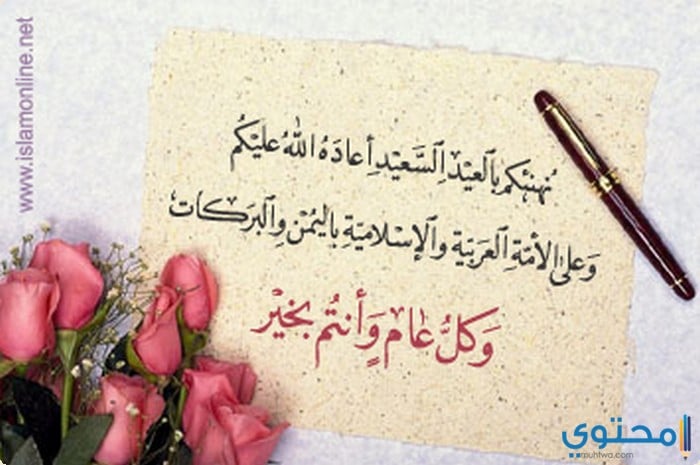 www.islamonline.net
نهنئكم بالعيد السعيد أعاده الله عليكم
وعلى الأمة العربية والإسلامية باليمن والبركات
وكل عام وأنتم بخير
محتوي
muhtwa.com